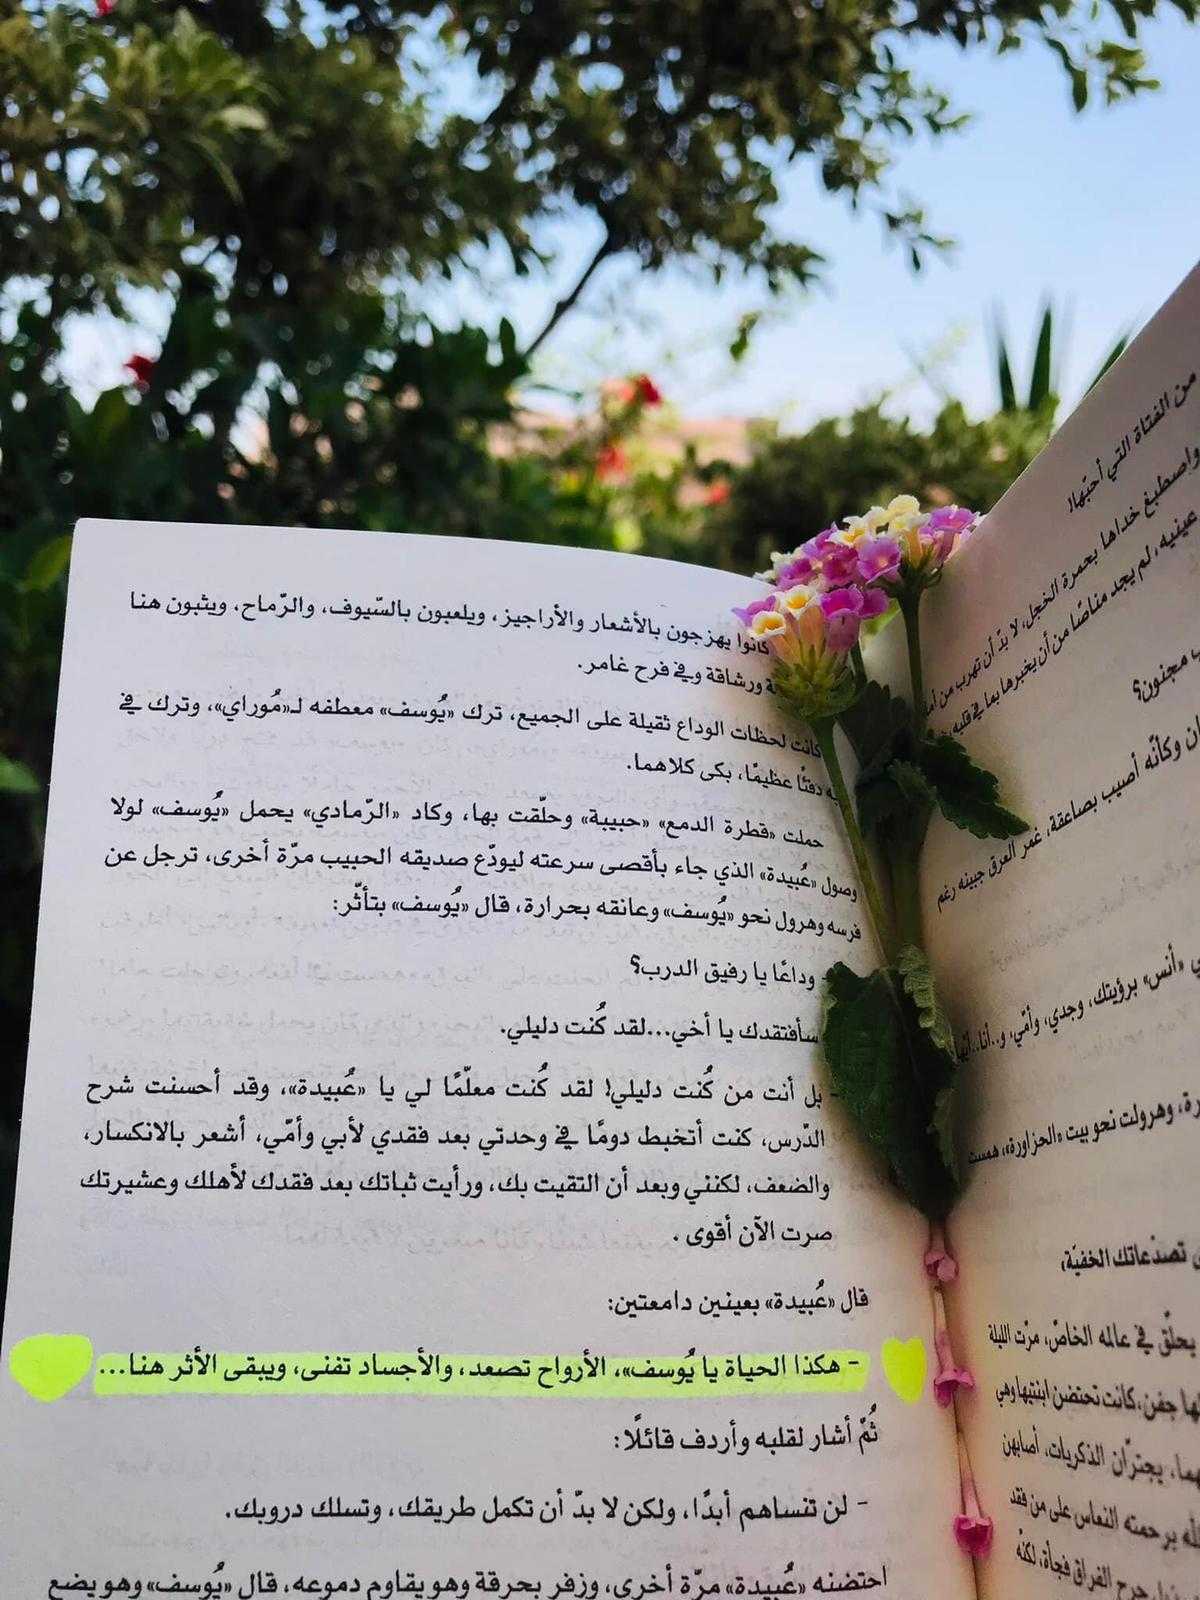 كانوا يهزجون بالأشعار والأراجيز، ويلعبون بالسّيوف، والرّماح، ويثبون هنا
ورشاقة وفي فرح غامر.
كانت لحظات الوداع ثقيلة على الجميع، ترك «يُوسف» معطفه لـ«مُوراي»، وترك في
دفئًا عظيمًا، بكى كلاهما.
حملت «قطرة الدمع» «حبيبة» وحلّقت بها، وكاد «الرّمادي» يحمل «يُوسف» لولا
وصول «عُبيدة» الذي جاء بأقصى سرعته ليودّع صديقه الحبيب مرّة أخرى، ترجل عن
فرسه وهرول نحو «يُوسف» وعانقه بحرارة، قال «يُوسف» بتأثّر:
- وداعًا يا رفيق الدرب؟
سأفتقدك يا أخي...لقد كُنت دليلي.
- بل أنت من كُنت دليلي! لقد كُنت معلّمًا لي يا «عُبيدة»، وقد أحسنت شرح
الدّرس، كنت أتخبط دومًا في وحدتي بعد فقدي لأبي وأمّي، أشعر بالانكسار،
والضعف، لكنني وبعد أن التقيت بك، ورأيت ثباتك بعد فقدك لأهلك وعشيرتك
صرت الآن أقوى .
قال «عُبيدة» بعينين دامعتين:
- هكذا الحياة يا يُوسف»، الأرواح تصعد، والأجساد تفنى، ويبقى الأثر هنا...
ثُمّ أشار لقلبه وأردف قائلًا:
- لن تنساهم أبدًا، ولكن لا بدّ أن تكمل طريقك، وتسلك دروبك.
احتضنه «عُبيدة» مرّة أخرى، وزفر بحرقة وهو يقاوم دموعه، قال «يُوسف» وهو يضع
من الفتاة التي أحبّها!
واصطبغ خداها بحمرة الخجل، لا بدّ أن تهرب من أمام
عينيه، لم يجد مناصًا من أن يخبرها بما في قلبه
مجنون؟
وكأنّه أصيب بصاعقة، غمر العرق جبينه رغم
«أنس» برؤيتك، وجدي، وأمّي، و..أنا..
وهرولت نحو بيت «الحزاورة»، همست
تصدّعاتك الخفيّة،
يحلّق في عالمه الخاصّ، مرّت الليلة
جفن، كانت تحتضن ابنتيها وهي
يجترّان الذكريات، أصابهن
برحمته النعاس على من فقد
جرح الفراق فجأة، لكنّه